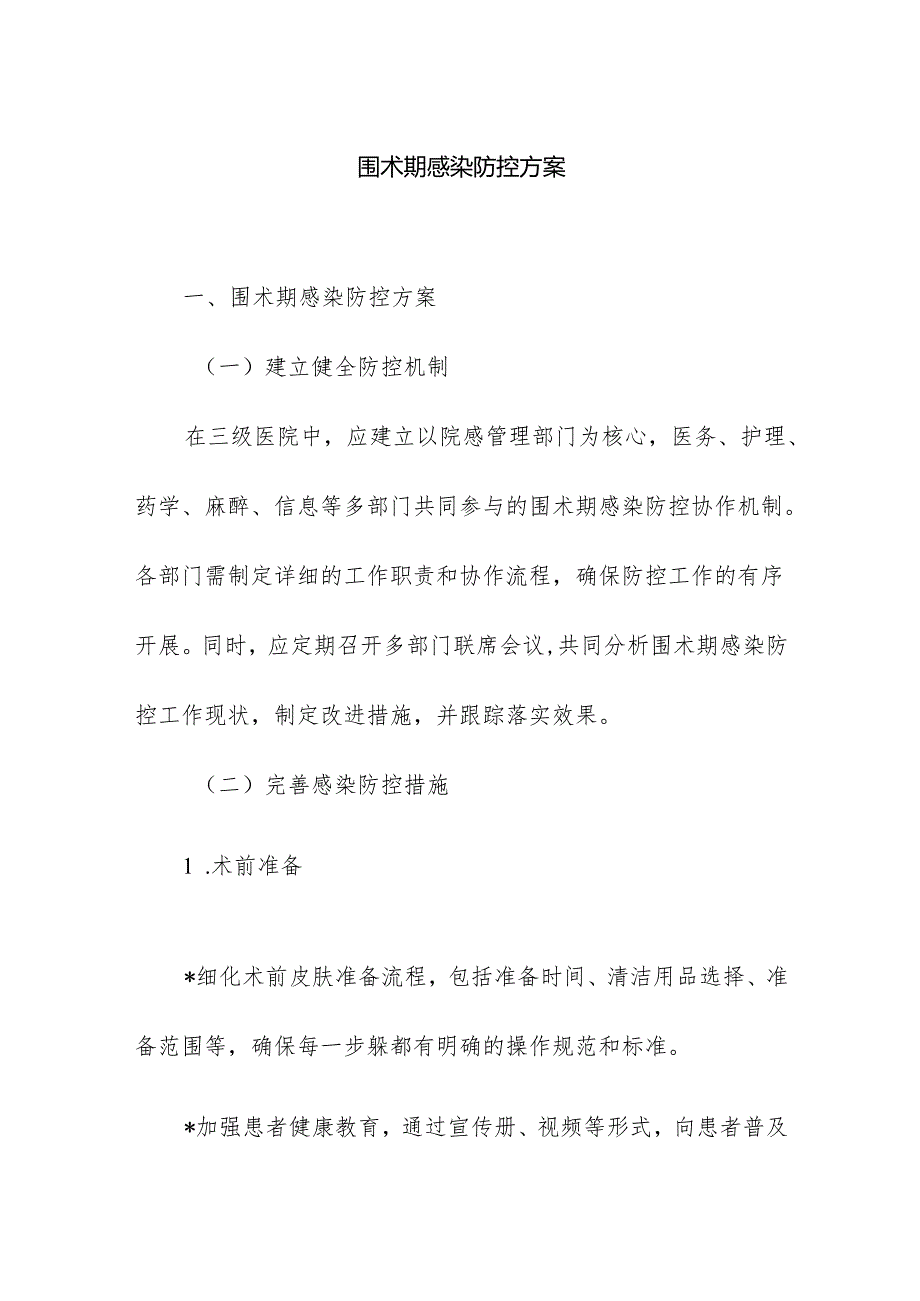 围术期感染防控方案
一、围术期感染防控方案
（一）建立健全防控机制
在三级医院中，应建立以院感管理部门为核心，医务、护理、
药学、麻醉、信息等多部门共同参与的围术期感染防控协作机制。
各部门需制定详细的工作职责和协作流程，确保防控工作的有序
开展。同时，应定期召开多部门联席会议,共同分析围术期感染防
控工作现状，制定改进措施，并跟踪落实效果。
（二）完善感染防控措施
1 .术前准备
*细化术前皮肤准备流程，包括准备时间、清洁用品选择、准
备范围等，确保每一步躲都有明确的操作规范和标准。
*加强患者健康教育，通过宣传册、视频等形式，向患者普及